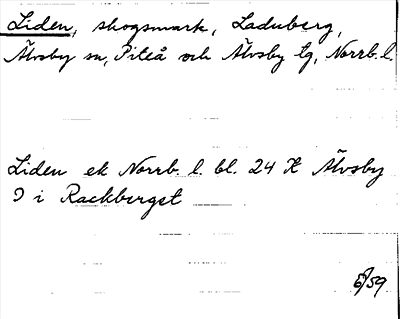 Liden, skogsmark, Laduberg,
Älvsby sn, Piteå och Älvsby tg, Norrb. l.
Liden ek Norrb. l. bl. 24 K Älvsby
i Rackberget
5/59